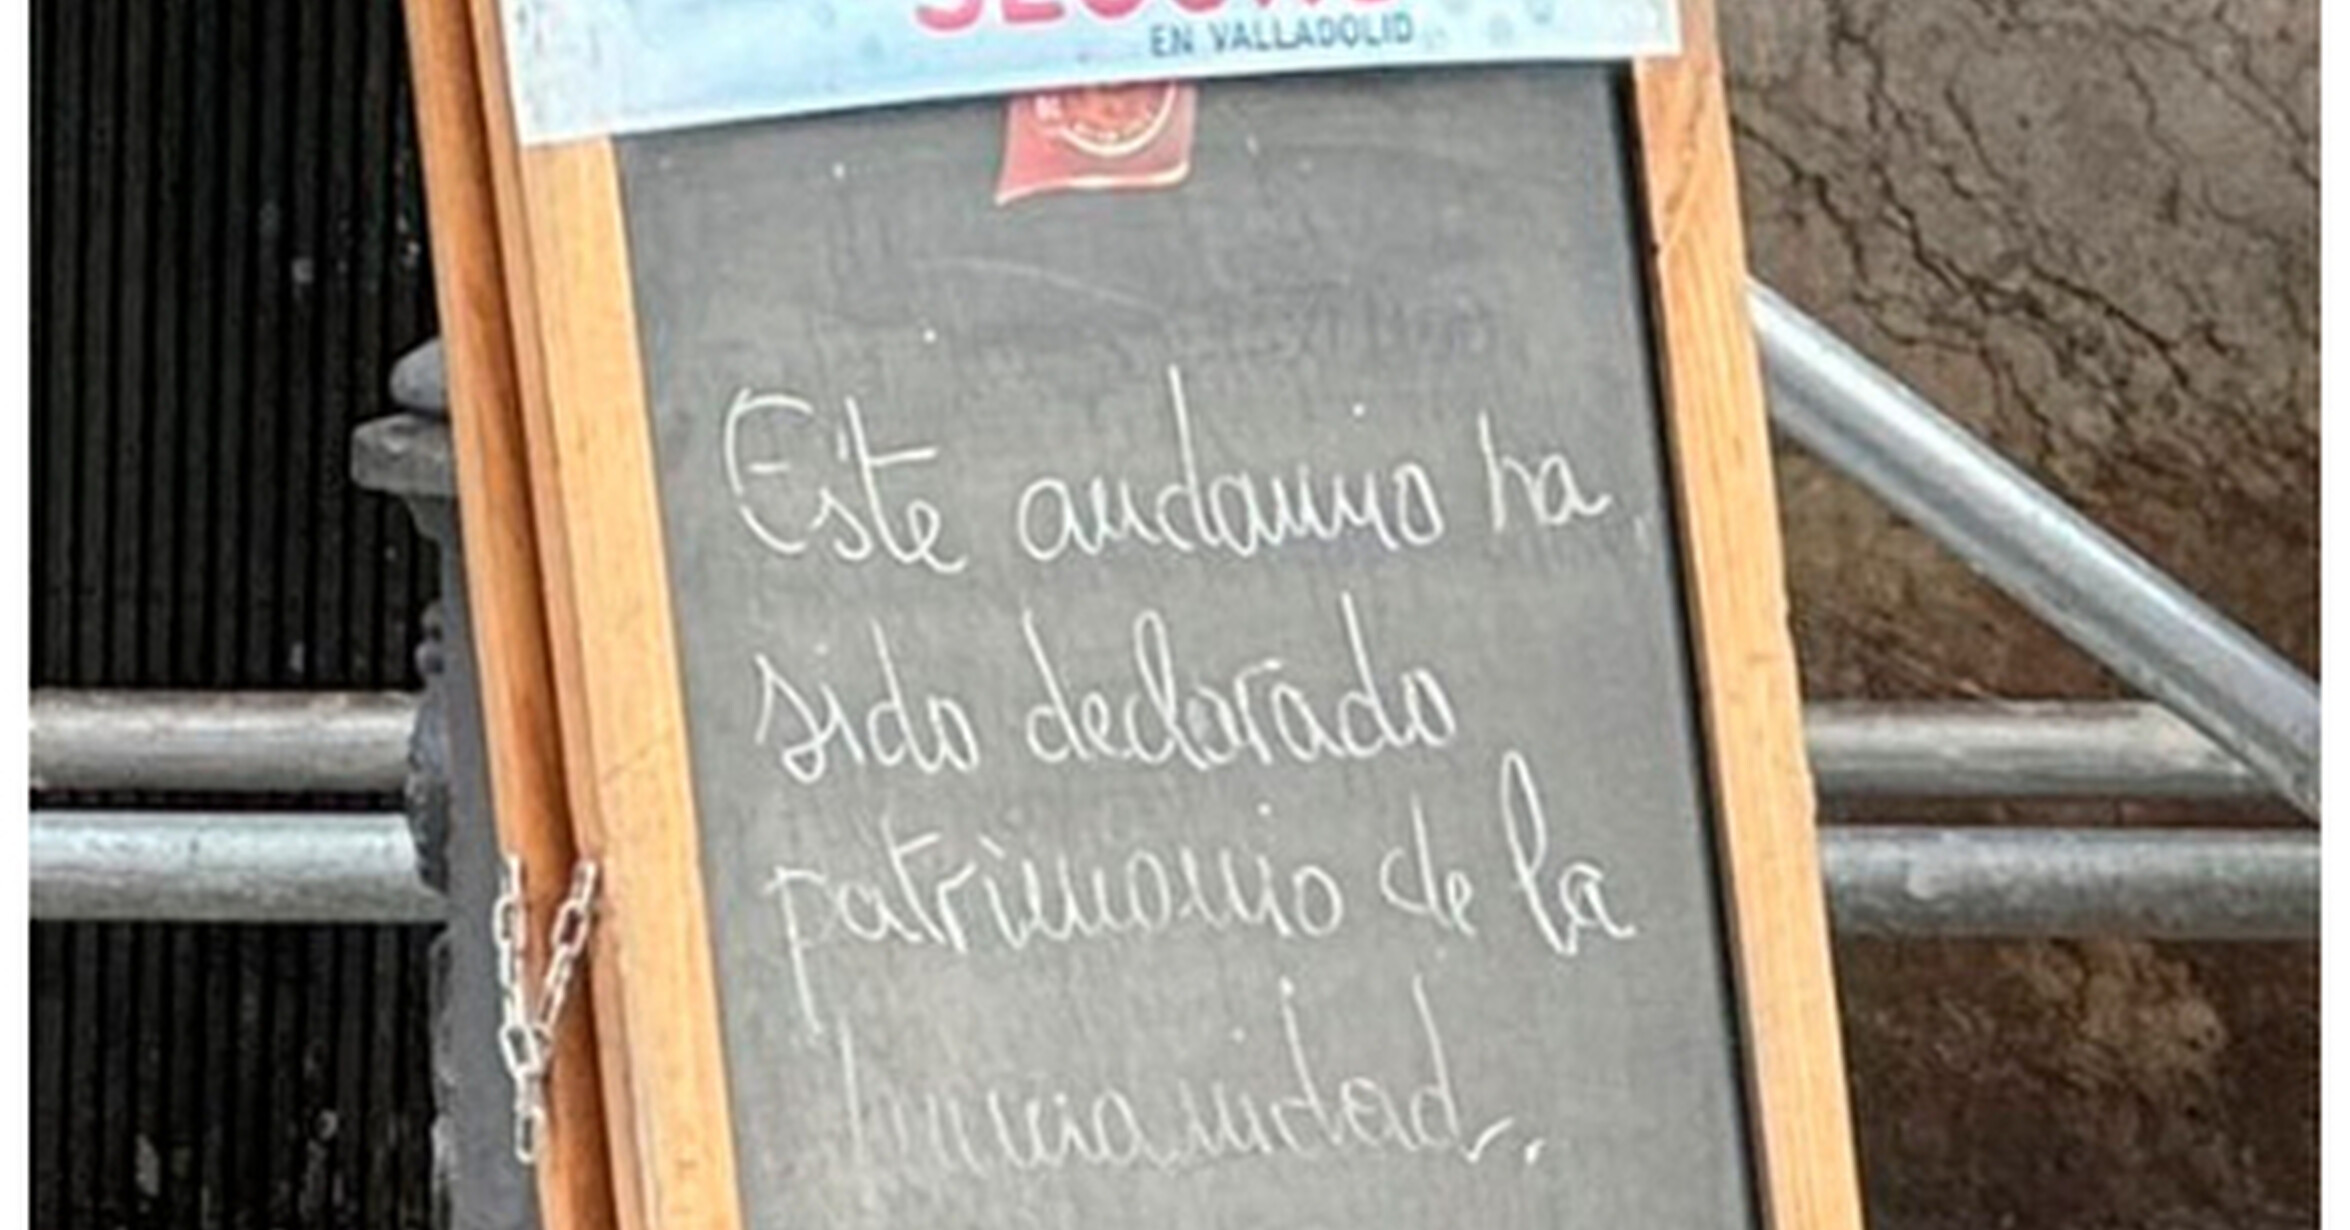 EN VALLADOLID
Este andamio ha
sido declarado
patrimonio de la
humanidad.